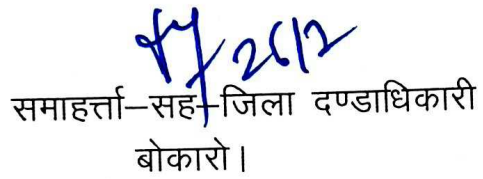 26/2
समाहर्त्ता–सह–जिला दण्डाधिकारी
बोकारो।